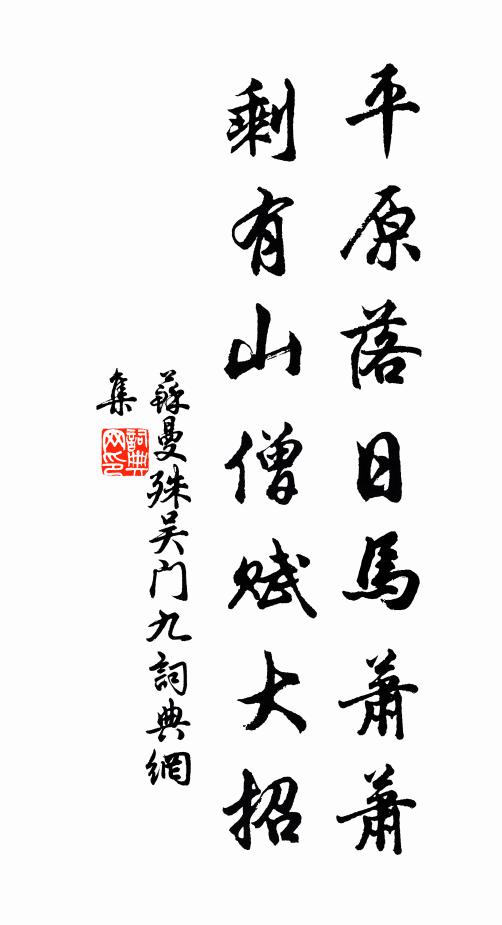 平原落日馬蕭蕭
剩有山僧賦大招
蘇曼殊吴门九詞典網
集
詞典网印